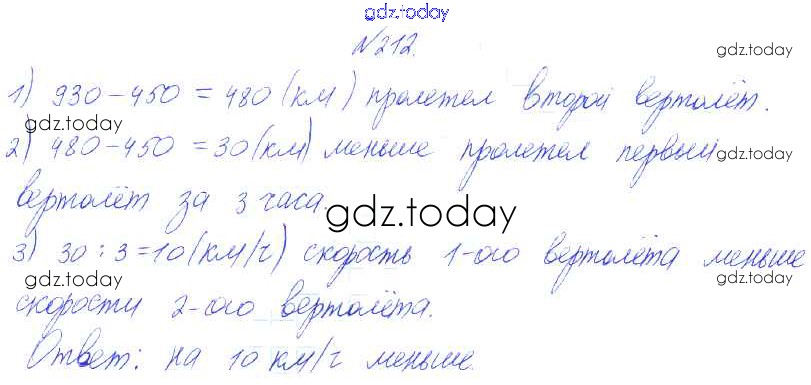 gdz.today
№212.
gdz.today
1) 930-450=480(км) пролетел второй вертолёт.
gdz.today
2) 480-450=30(км) меньше пролетел первый
gdz.today
вертолёт за 3 часа.
gdz.today
3) 30:3=10(км/ч) скорость 1-ого вертолёта меньше
gdz.today
gdz.today
скорости 2-ого вертолёта.
Ответ: на 10 км/ч меньше.
gdz.today